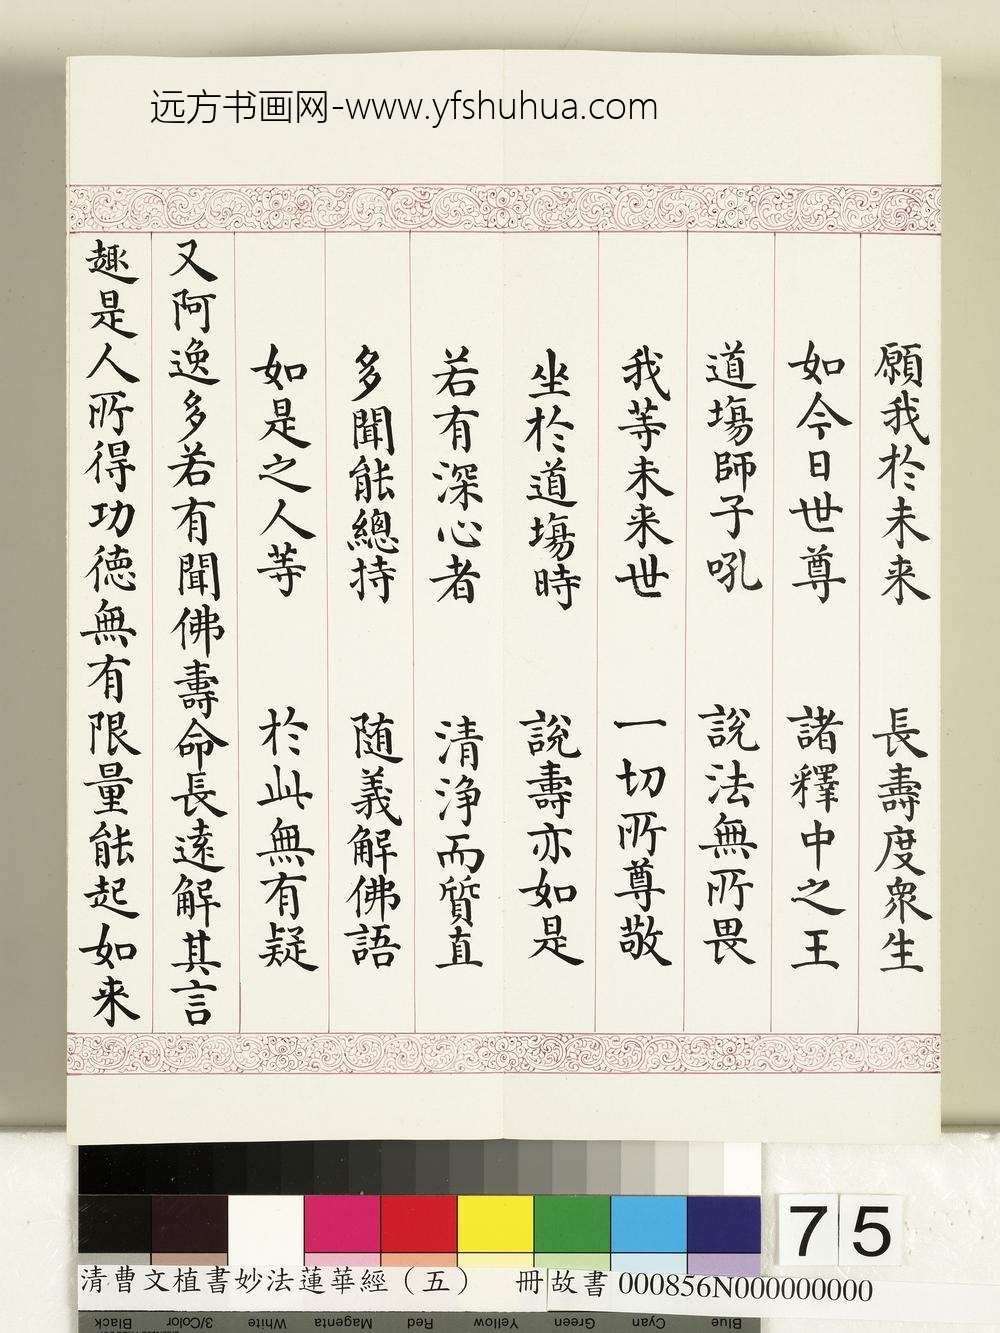 远方书画网-www.yfshuhua.com
願我於未来 長壽度衆生
如今日世尊 諸釋中之王
道塲師子吼 說法無所畏
我等未来世 一切所尊敬
坐於道塲時 說壽亦如是
若有深心者 清淨而質直
多聞能總持 随義解佛語
如是之人等 於此無有疑
又阿逸多若有聞佛壽命長遠解其言
趣是人所得功德無有限量能起如来
75
清曹文植書妙法蓮華經（五） 冊 故書 000856N000000000
Black 3/Color White Magenta Red Yellow Green Cyan Blue